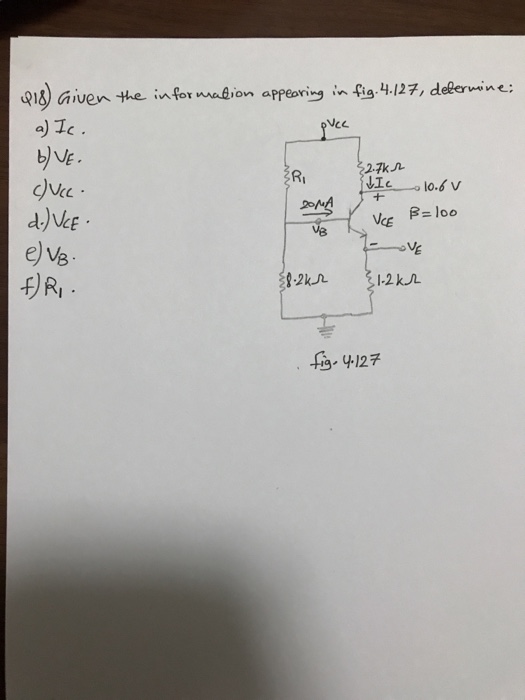 Q18) Given the information appearing in fig. 4.127, determine:
a) Ic.
b) VE.
c) Vcc.
d.) VCE.
e) VB.
f) R1.
Vcc
R1
2.7kΩ
↓Ic
10.6 V
+
20MA
VCE
β=100
VB
-
VE
8.2kΩ
1.2kΩ
fig. 4.127